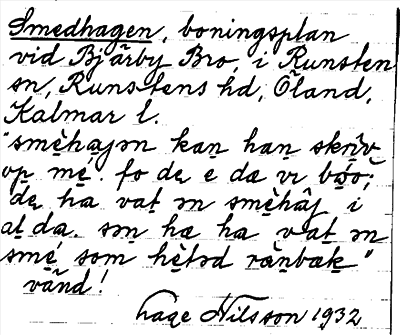 Smedhagen, boningsplan
vid Bjärby Bro, i Runsten
sn, Runstens hd, Öland,
Kalmar l.
"smèhajən kan han skrīv
op mé. fo də e da vi boo;
də ha vat ən smèhâj i
al da. sən ha ha vat ən
smé som hètəd rànbæk"
vänd!
Hage Nilsson 1932